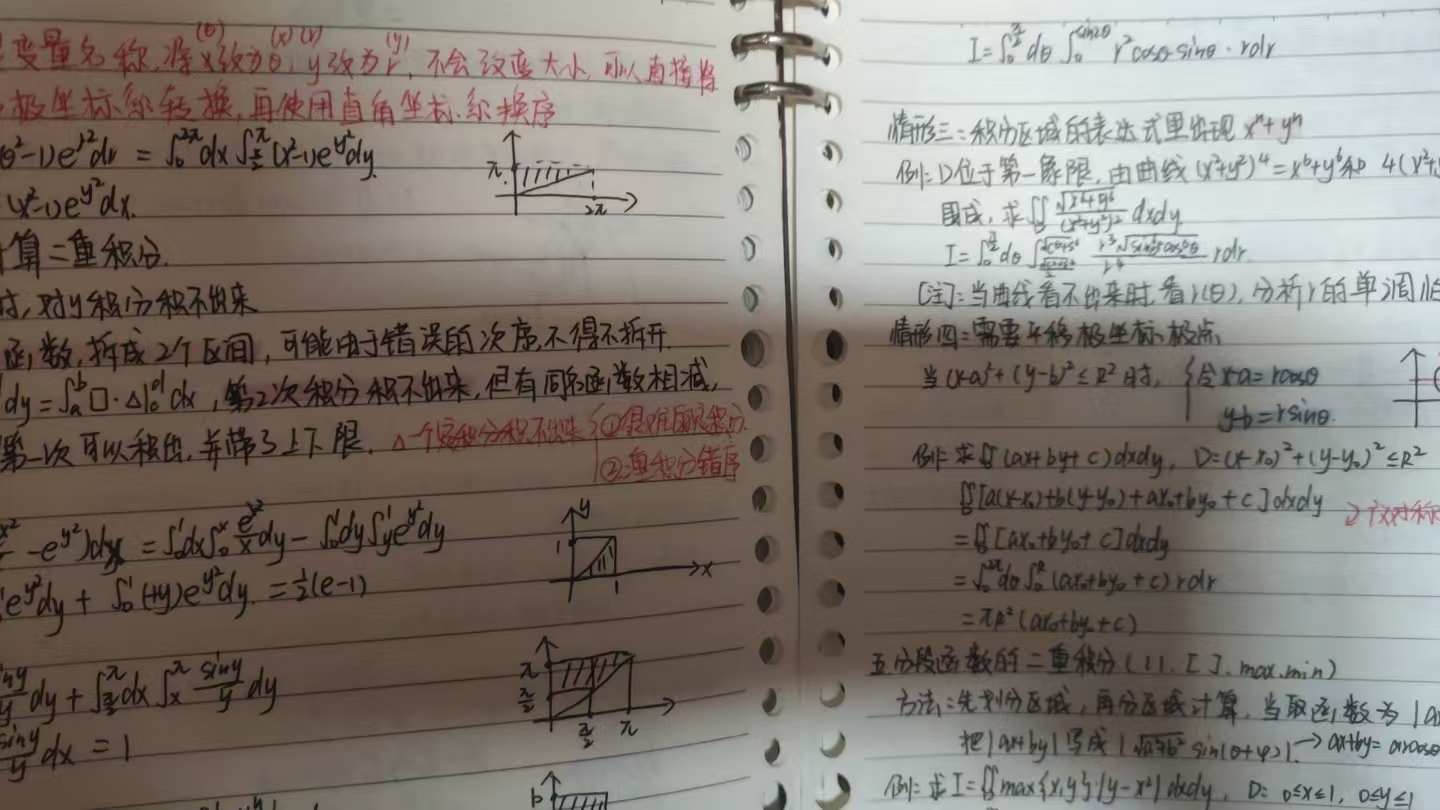 变量名称,将x改为θ,y改为r,不会改变大小,可以直接将
(θ) (x) (r) (y)
极坐标系转换,再使用直角坐标系换序
(θ²-1)e^{r²}dr = ∫₀^{2π}dx∫_{x/2}^{π}(x²-1)e^{y²}dy.
(x²-1)e^{y²}dx.
π
2π
计算二重积分.
时,对y积分积不出来
函数,拆成2个区间,可能由于错误的次序,不得不拆开.
dy=∫_a^b □·△|_c^d dx,第2次积分积不出来,但有同形函数相减,
第一次可以积出,并带了上下限.
△一个定积分积不出来{①很难的定积分.
②二重积分错序
-e^{y²})dy = ∫₀¹dx∫₀^x dy - ∫₀¹dy∫_y¹e^{y²}dy
e^{y²}dy + ∫₀¹(-1+y)e^{y²}dy = ½(e-1)
y
1
1
x
dy + ∫_{π/2}^{π}dx∫_x^{π} siny/y dy
siny/y dx = 1
π
π/2
π/2
π
b
I=∫₀^{π/2}dθ∫₀^{sin2θ} r²cosθ·sinθ·rdr
情形三:积分区域的表达式里出现 xⁿ+yⁿ
例:D位于第一象限,由曲线(x²+y²)⁴=x⁶+y⁶和 4(x²+
围成,求∬_D √(x⁶+y⁶)/(x²+y²)² dxdy
I=∫₀^{π/2}dθ∫ rdr.
[注]:当曲线看不出来时,看r(θ),分析r的单调性
情形四:需要平移极坐标极点.
当(x-a)²+(y-b)²≤R²时,{令x-a=rcosθ
y-b=rsinθ.
例:求∬(ax+by+c)dxdy,D=(x-x₀)²+(y-y₀)²≤R²
∬[a(x-x₀)+b(y-y₀)+ax₀+by₀+c]dxdy
2个对称
=∬[ax₀+by₀+c]dxdy
=∫₀^{2π}dθ∫₀^R(ax₀+by₀+c)rdr
=πR²(ax₀+by₀+c)
五.分段函数的二重积分(| |.[ ].max.min)
方法:先划分区域,再分区域计算,当取函数为|a
把|ax+by|写成|√(a²+b²) sin(θ+φ)|.→ax+by=arcosθ
例:求I=∬max{x,y}·|y-x²|dxdy,D:0≤x≤1,0≤y≤1